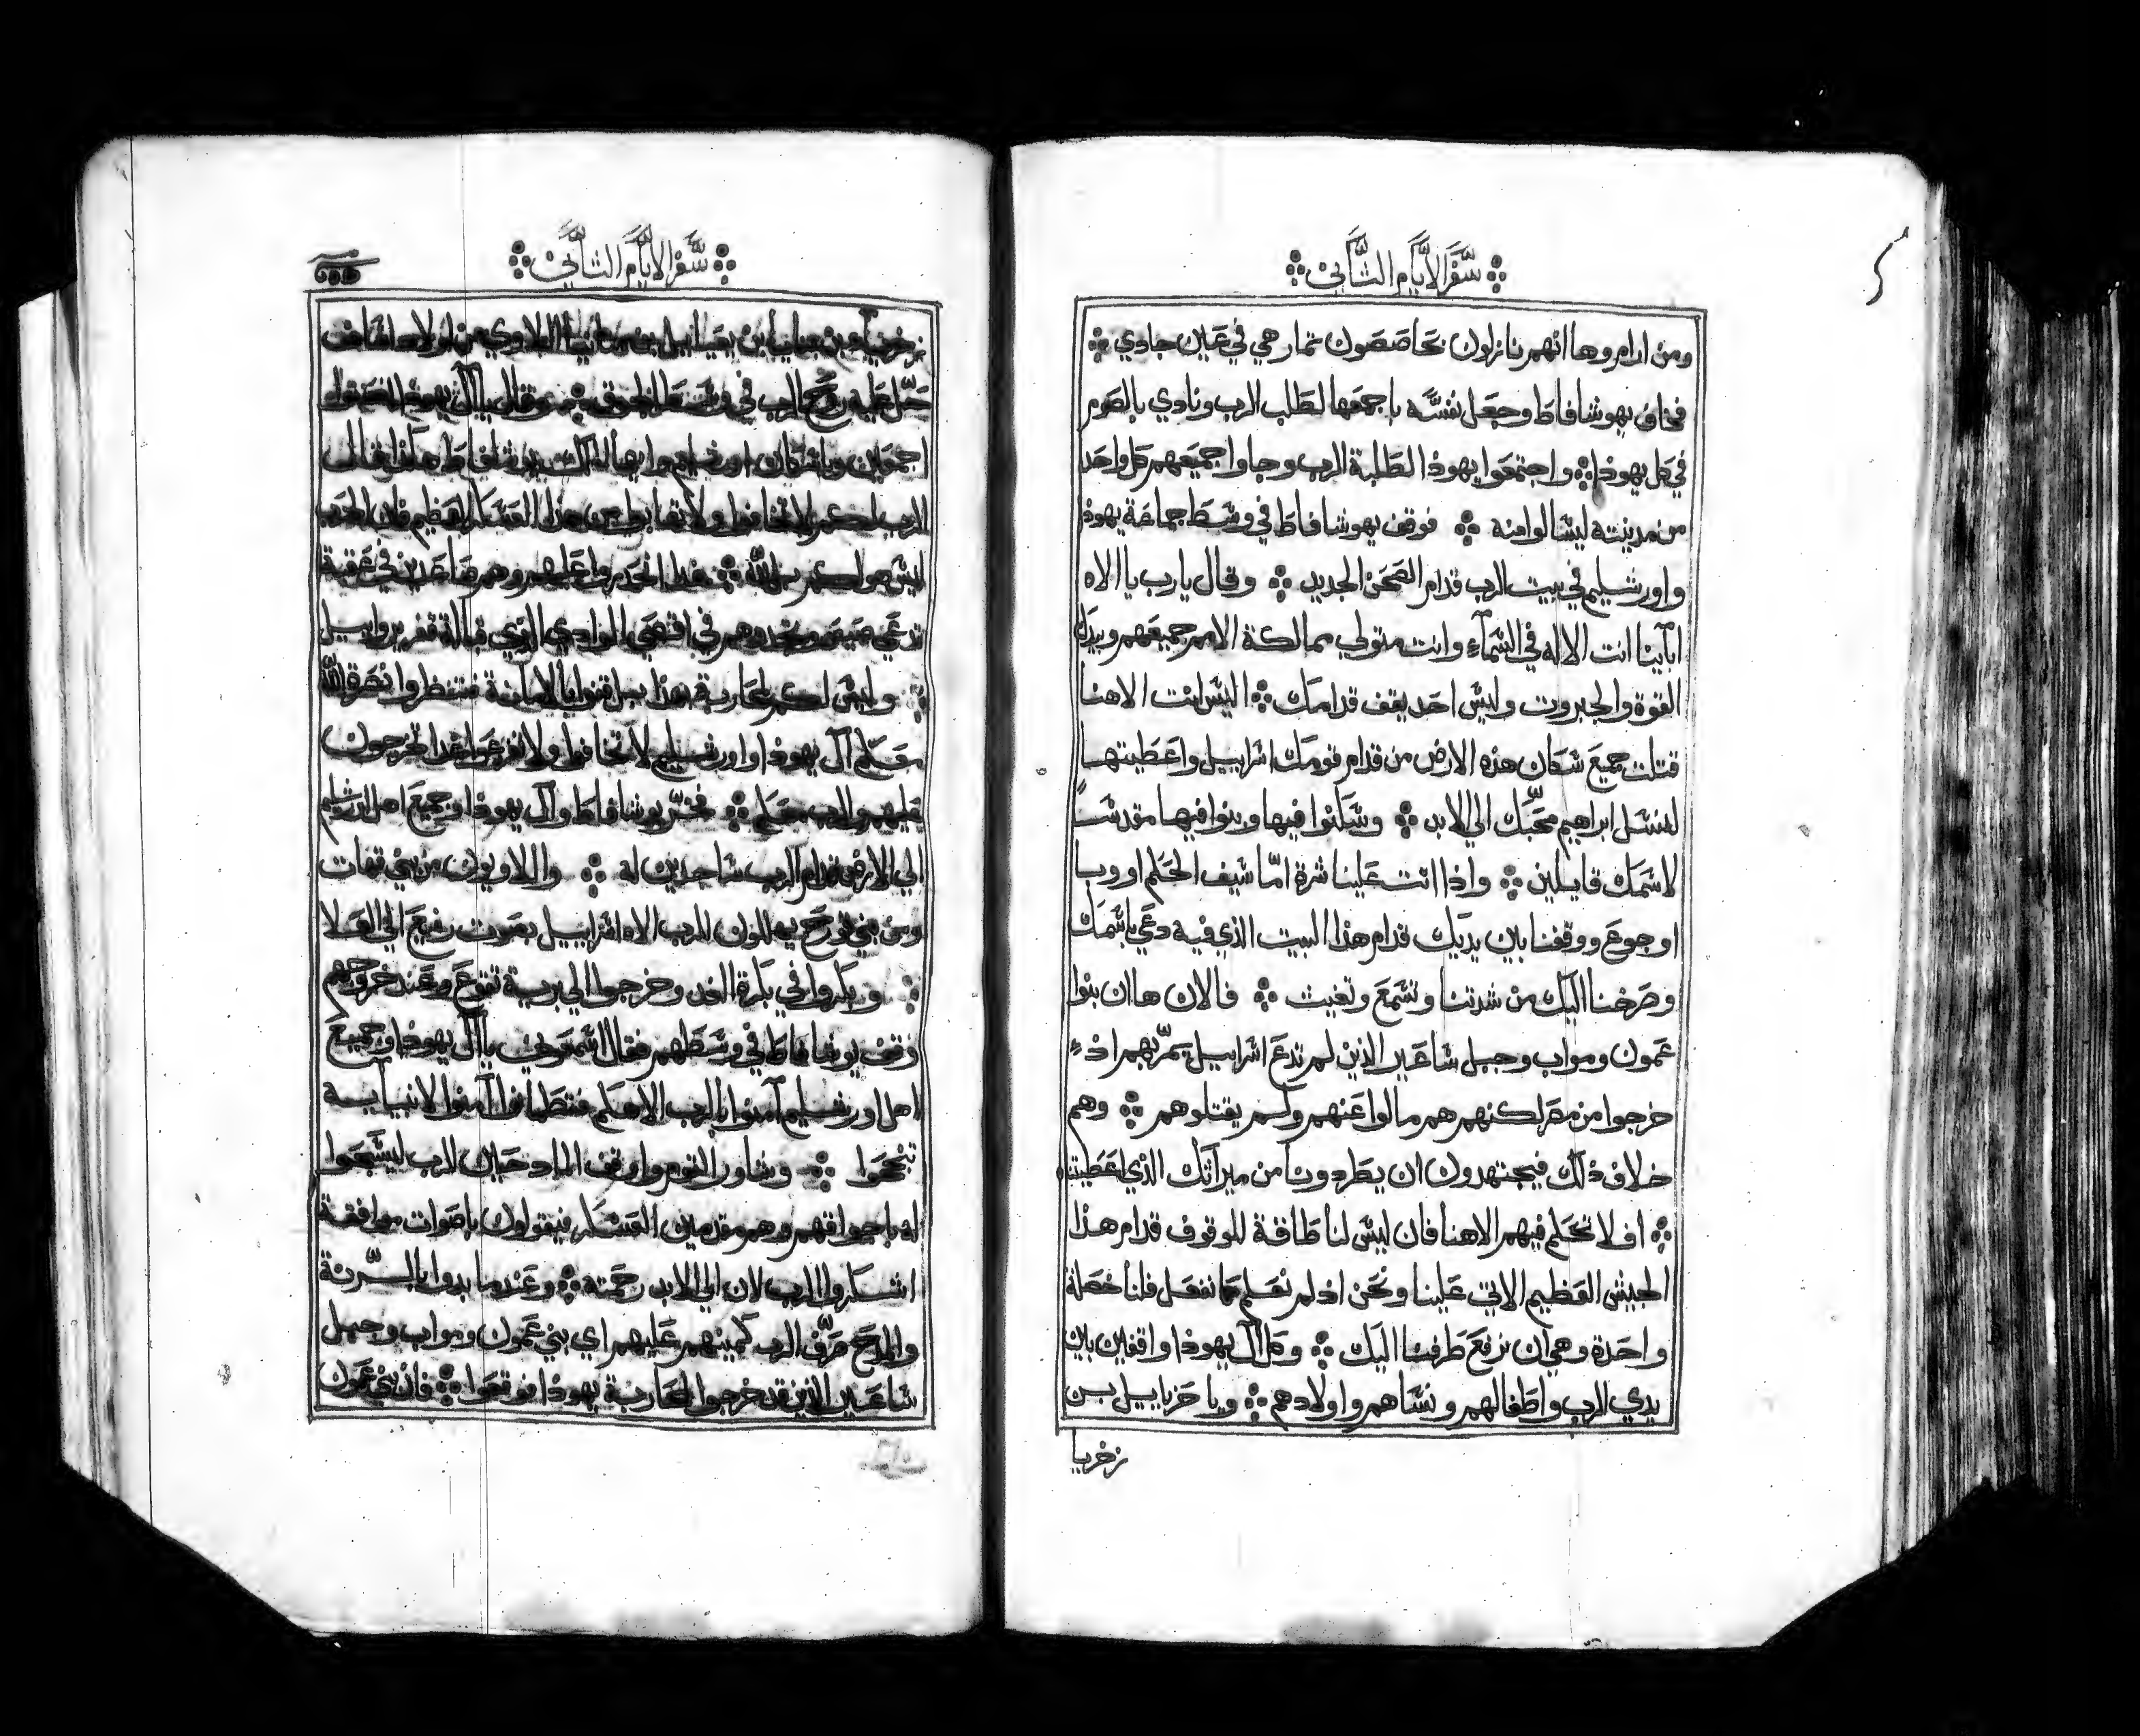 سفر الايام التاني
ومن ارام وها انهم نازلون بحاصصون تمار هي في عين جادي
فخاف يهوشافاط وجعل نفسه باجمعها لطلب الرب ونادي بالصوم
في كل يهوذا واجتمعوا يهوذا لطلبة الرب وجاوا جميعهم كل واحد
من مدينته ليسالوا منه فوقف يهوشافاط في وسط جماعة يهوذا
واورشليم في بيت الرب قدام الصحن الجديد وقال يا رب يا الاه
ابآينا انت الاله في السمآء وانت متولي ممالكة الامم جميعهم وبيدك
القوة والجبروت وليس احد يقف قدامك اليس انت الاهنا
قتلت جميع سكان هذه الارض من قدام قومك اسراييل واعطيتها
لنسل ابراهيم محبك الي الابد وسكنوا فيها وبنوا فيها مقدسا
لاسمك قايلين واذا اتت علينا شرة اما سيف الحكم او وبا
او جوع ووقفنا بين يديك قدام هذا البيت الذي فيه دعي باسمك
وصرخنا اليك من شدتنا وتسمع وتغيث فالان ها ان بنوا
عمون ومواب وجبل ساعير الذين لم تدع اسراييل يمر بهم اذ
خرجوا من مصر لكنهم هم مالوا عنهم ولم يقتلوهم وهم
خلاف ذلك فيجتهدون ان يطردونا من ميراثك الذي اعطيتنا
افلا تحكم فيهم الاهنا فان ليس لنا طاقة للوقوف قدام هذا
الجيش العظيم الاتي علينا ونحن اذ لم نعلم ما نفعل فلنا خصلة
واحدة وهي ان نرفع طرفنا اليك وكل آل يهوذا واقفين بين
يدي الرب واطفالهم ونساهم واولادهم ويا حزياييل بن
زخريا
سفر الايام التاني
زخريا بن بنايا بن يعياييل بن متانيا اللاوي من اولاد اساف
حل عليه روح الرب في وسط الجوق وقال يا آل يهوذا انصتوا
اجمعين ويا سكان اورشليم وايها الملك يهوشافاط هكذا قال
الرب لكم لا تخافوا ولا تهابوا من هذا العسكر العظيم فان الحرب
ليس هو لكم بل لله غدا انحدروا عليهم وهم صاعدين في عقبة
تدعي صيص وتجدوهم في اقصي الوادي الذي قبالة قفر يروابيل
وليس لكم محاربة هذا بل قفوا بالامانة فتنظروا نصرة الله
معكم آل يهوذا واورشليم لا تخافوا ولا تفزعوا غدا تخرجون
عليهم والرب معكم فخر يوشافاط وآل يهوذا وجميع اهل اورشليم
الي الارض قدام الرب ساجدين له واللاويون من بني قهات
ومن بني قورح يهللون للرب الاه اسراييل بصوت رفيع الي العلا
وبكروا في بكرة الغد وخرجوا الي برية تقوع وعند خروجهم
وقف يوشافاط في وسطهم فقال اسمعوني يا آل يهوذا وجميع
اهل اورشليم آمنوا بالرب الاهكم فتطمانوا آمنوا لانبيايه
تنجحوا وشاور القوم واوقف المادحين للرب ليسبحوا
له باجواقهم وهم مقدمين العسكر فيقولون باصوات موافقة
اشكروا الرب لان الي الابد رحمته وعندما بدوا بالسرنة
والمدح صرف الرب كمينهم عليهم اي بني عمون ومواب وجبل
ساعير الذين قد خرجوا لمحاربة يهوذا فوقعوا فان بني عمون